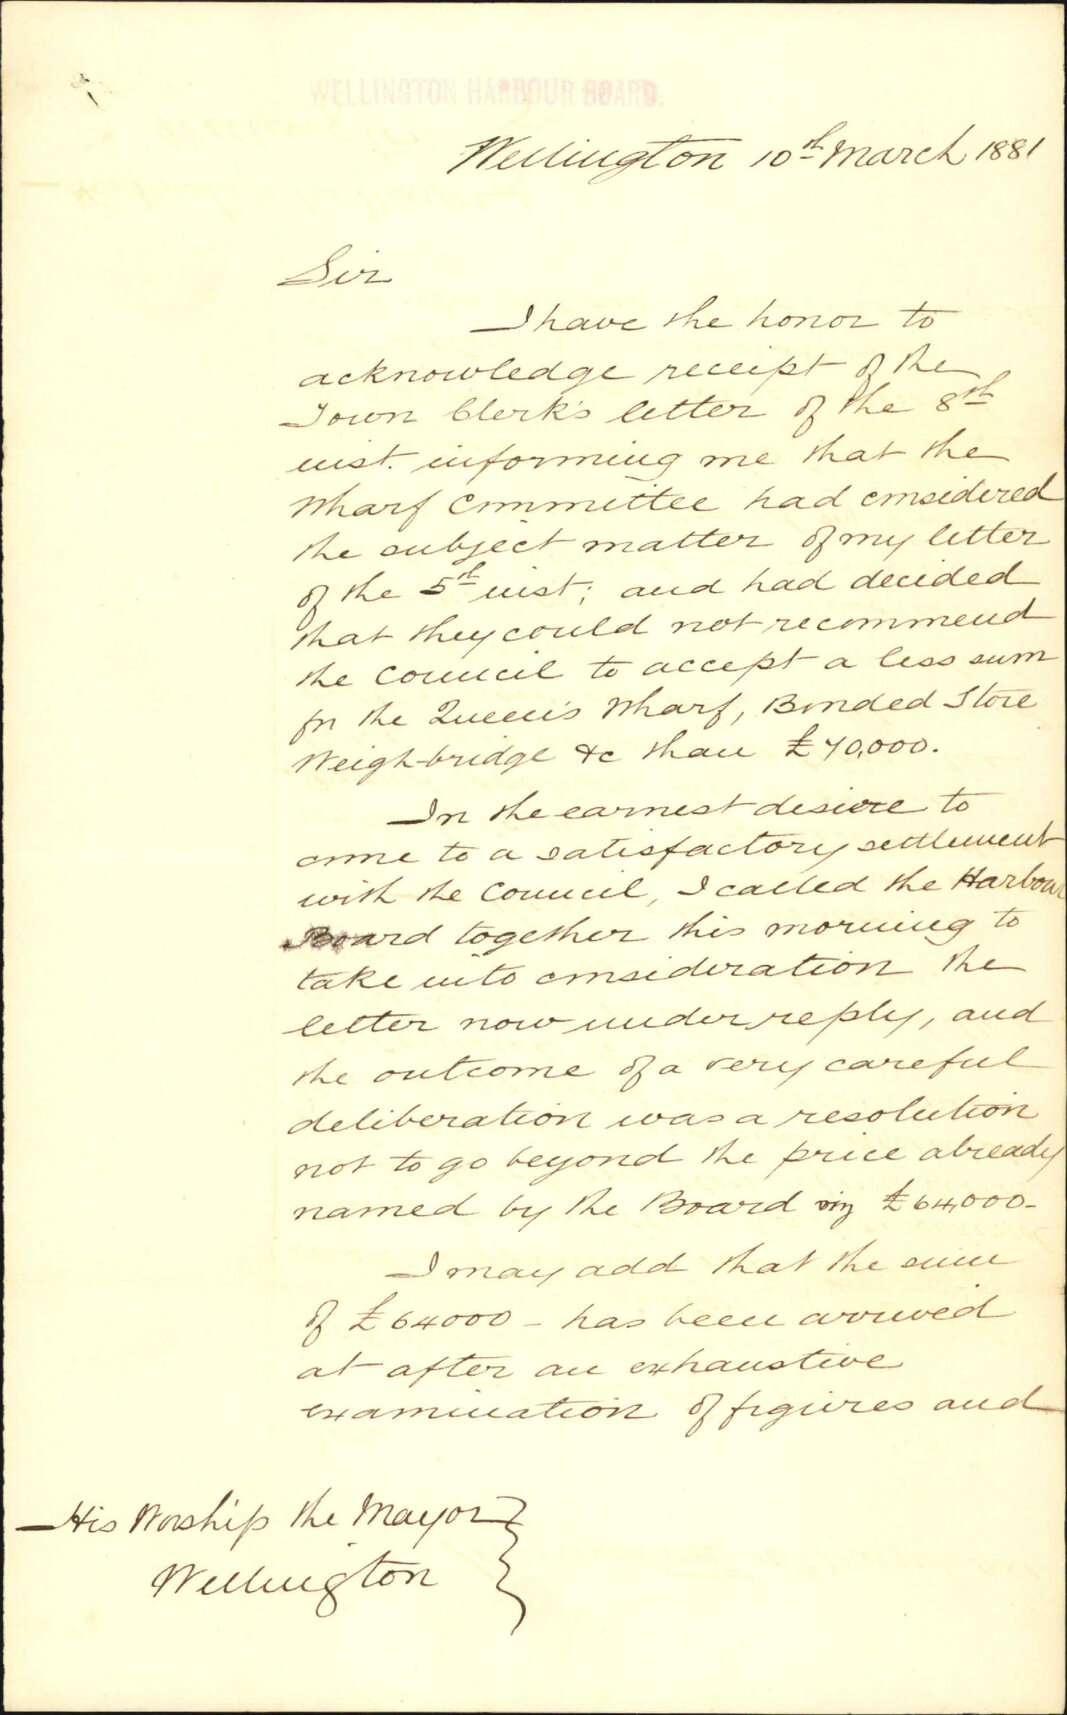 WELLINGTON HARBOUR BOARD.
Wellington 10th March 1881
Sir
I have the honor to
acknowledge receipt of the
Town Clerk's letter of the 8th
inst. informing me that the
Wharf Committee had considered
the subject matter of my letter
of the 5th inst; and had decided
that they could not recommend
the Council to accept a less sum
for the Queen's Wharf, Bonded Store
Weigh-bridge &c than £70,000.
In the earnest desire to
come to a satisfactory settlement
with the Council, I called the Harbour
Board together this morning to
take into consideration the
letter now under reply, and
the outcome of a very careful
deliberation was a resolution
not to go beyond the price already
named by the Board viz £64,000-
I may add that the sum
of £64000 - has been arrived
at after an exhaustive
examination of figures and
His Worship the Mayor
Wellington